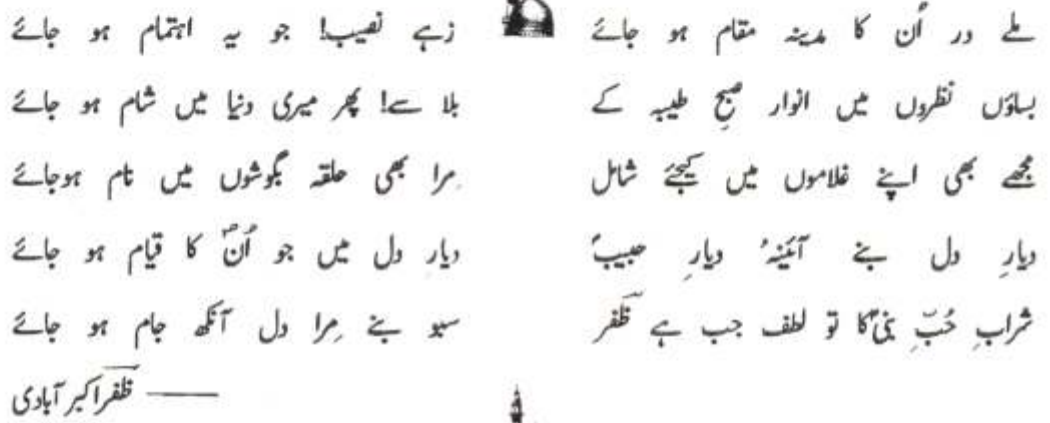 ملے در اُن کا مدینہ مقام ہو جائے زہے نصیب! جو یہ اہتمام ہو جائے
بساؤں نظروں میں انوار صبحِ طیبہ کے بلا سے! پھر میری دنیا میں شام ہو جائے
مجھے بھی اپنے غلاموں میں کیجئے شامل مِرا بھی حلقہ بگوشوں میں نام ہوجائے
دیارِ دل بنے آئینۂ دیارِ حبیبؐ دیار دل میں جو اُنؐ کا قیام ہو جائے
شرابِ حُبِّ نبیؐ کا تو لطف جب ہے ظفر سبو بنے مِرا دل آنکھ جام ہو جائے
—— ظفر اکبر آبادی